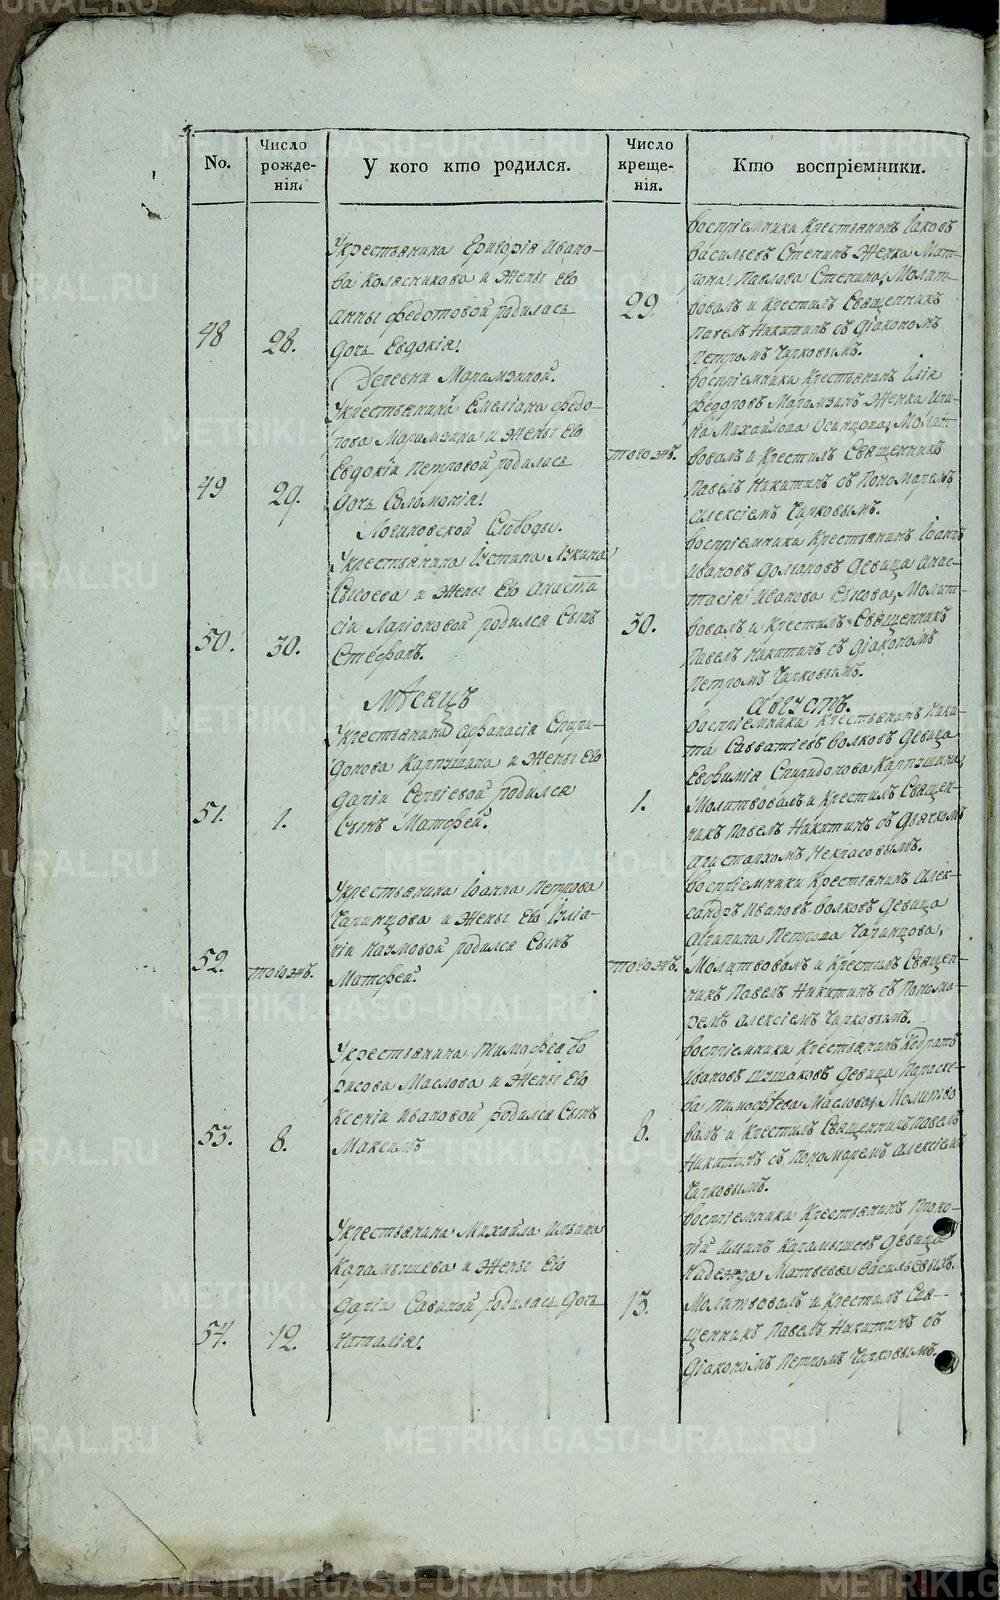 No.
Число рожде-нія.
У кого кто родился.
Число креще-нія.
Кто воспріемники.
48
28.
Укрестьянина Григорія Ивано-
ва Колясникова и Жены Его
Анны Федотовой родилась
Дочь Евдокія.
29.
Воспріемники Крестьянинъ Іаковъ
Васильевъ Степинъ Женка Мат-
рона Павлова Степина, Молит-
вовалъ и Крестилъ Священникъ
Павелъ Никитинъ съ Діакономъ
Петромъ Чирковымъ.
Деревни Марамзиной.
49
29.
Укрестьянина Емеліана Федо-
рова Марамзина и Жены Его
Евдокіи Петровой родилась
Дочь Соломонія.
тогожъ.
Воспріемники Крестьянинъ Илія
Федоровъ Марамзинъ Женка Ири-
на Михайлова Осинцова, Молит-
вовалъ и Крестилъ Священникъ
Павелъ Никитинъ съ Пономаремъ
Алексіемъ Чирковымъ.
Логиновской Слободы.
50.
30.
Укрестьянина Іустина Лукина
Сысоева и Жены Его Анаста
сіи Ларіоновой родился Сынъ
Стефанъ.
30.
Воспріемники Крестьянинъ Іоаннъ
Ивановъ Долгановъ Девица Анас-
тасія Иванова Сысова, Молит-
вовалъ и Крестилъ Священникъ
Павелъ Никитинъ съ Діакономъ
Петромъ Чирковымъ.
Мѣсяцъ
Августъ.
51.
1.
Укрестьянина Афанасія Спири-
донова Карпушина и Жены Его
Даріи Сергіевой родился
Сынъ Матфей.
1.
Воспріемники Крестьянинъ Ники-
та Савватіевъ Волковъ Девица
Евфимія Спиридонова Карпушина,
Молитвовалъ и Крестилъ Священ-
никъ Павелъ Никитинъ съ Дьячкомъ
Аристархомъ Некрасовымъ.
52.
тогожъ.
Укрестьянина Іоанна Петрова
Чапинцова и Жены Его Іуліа-
ніи Наумовой родился Сынъ
Матфей.
тогожъ.
Воспріемники Крестьянинъ Алек-
сандръ Ивановъ Волковъ Девица
Агрипина Петрова Чапинцова,
Молитвовалъ и Крестилъ Священ-
никъ Павелъ Никитинъ съ Понома-
ремъ Алексіемъ Чирковымъ.
53.
8.
Укрестьянина Тимофея Бо
рисова Маслова и Жены Его
Ксеніи Ивановой родился Сынъ
Максимъ
8.
Воспріемники Крестьянинъ Кодратъ
Ивановъ Шишаковъ Девица Параске-
ва Тимофѣева Маслова, Молитво
валъ и Крестилъ Священникъ Павелъ
Никитинъ съ Пономаремъ Алексіемъ
Чирковымъ.
54.
12.
Укрестьянина Михайла Ильина
Карамышева и Жены Его
Даріи Савиной родилась Дочь
Наталія.
13.
Воспріемники Крестьянинъ Проко-
пій Ильинъ Карамышевъ Девица
Надежда Матвеева Васильевыхъ.
Молитвовалъ и Крестилъ Свя-
щенникъ Павелъ Никитинъ съ
Діакономъ Петромъ Чирковымъ.
METRIKI.GASO-URAL.RU